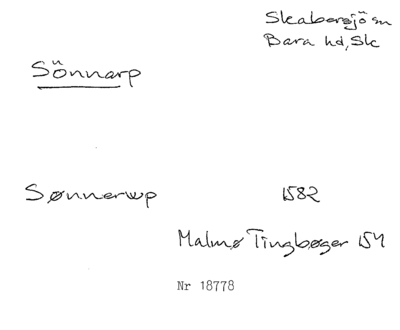 Skabersjö sn
Bara hd, Sk
Sönnarp
Sønnerup 1582
Malmø Tingbøger 154
Nr 18778